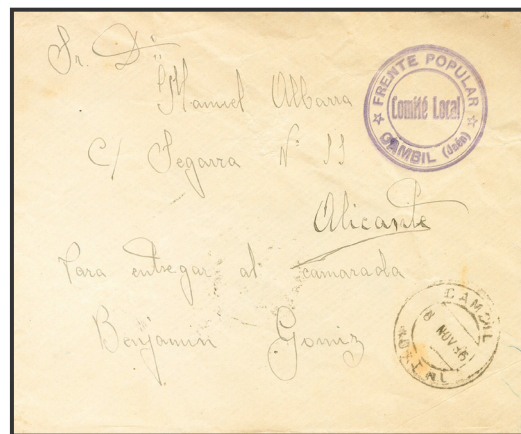 Sr. Dn
Manuel Albarra
C/ Segarra Nº 11
Alicante
Para entregar al camarada
Benjamin Gomiz
FRENTE POPULAR
Comité Local
CAMBIL (Jaén)
CAMBIL
8 NOV 36